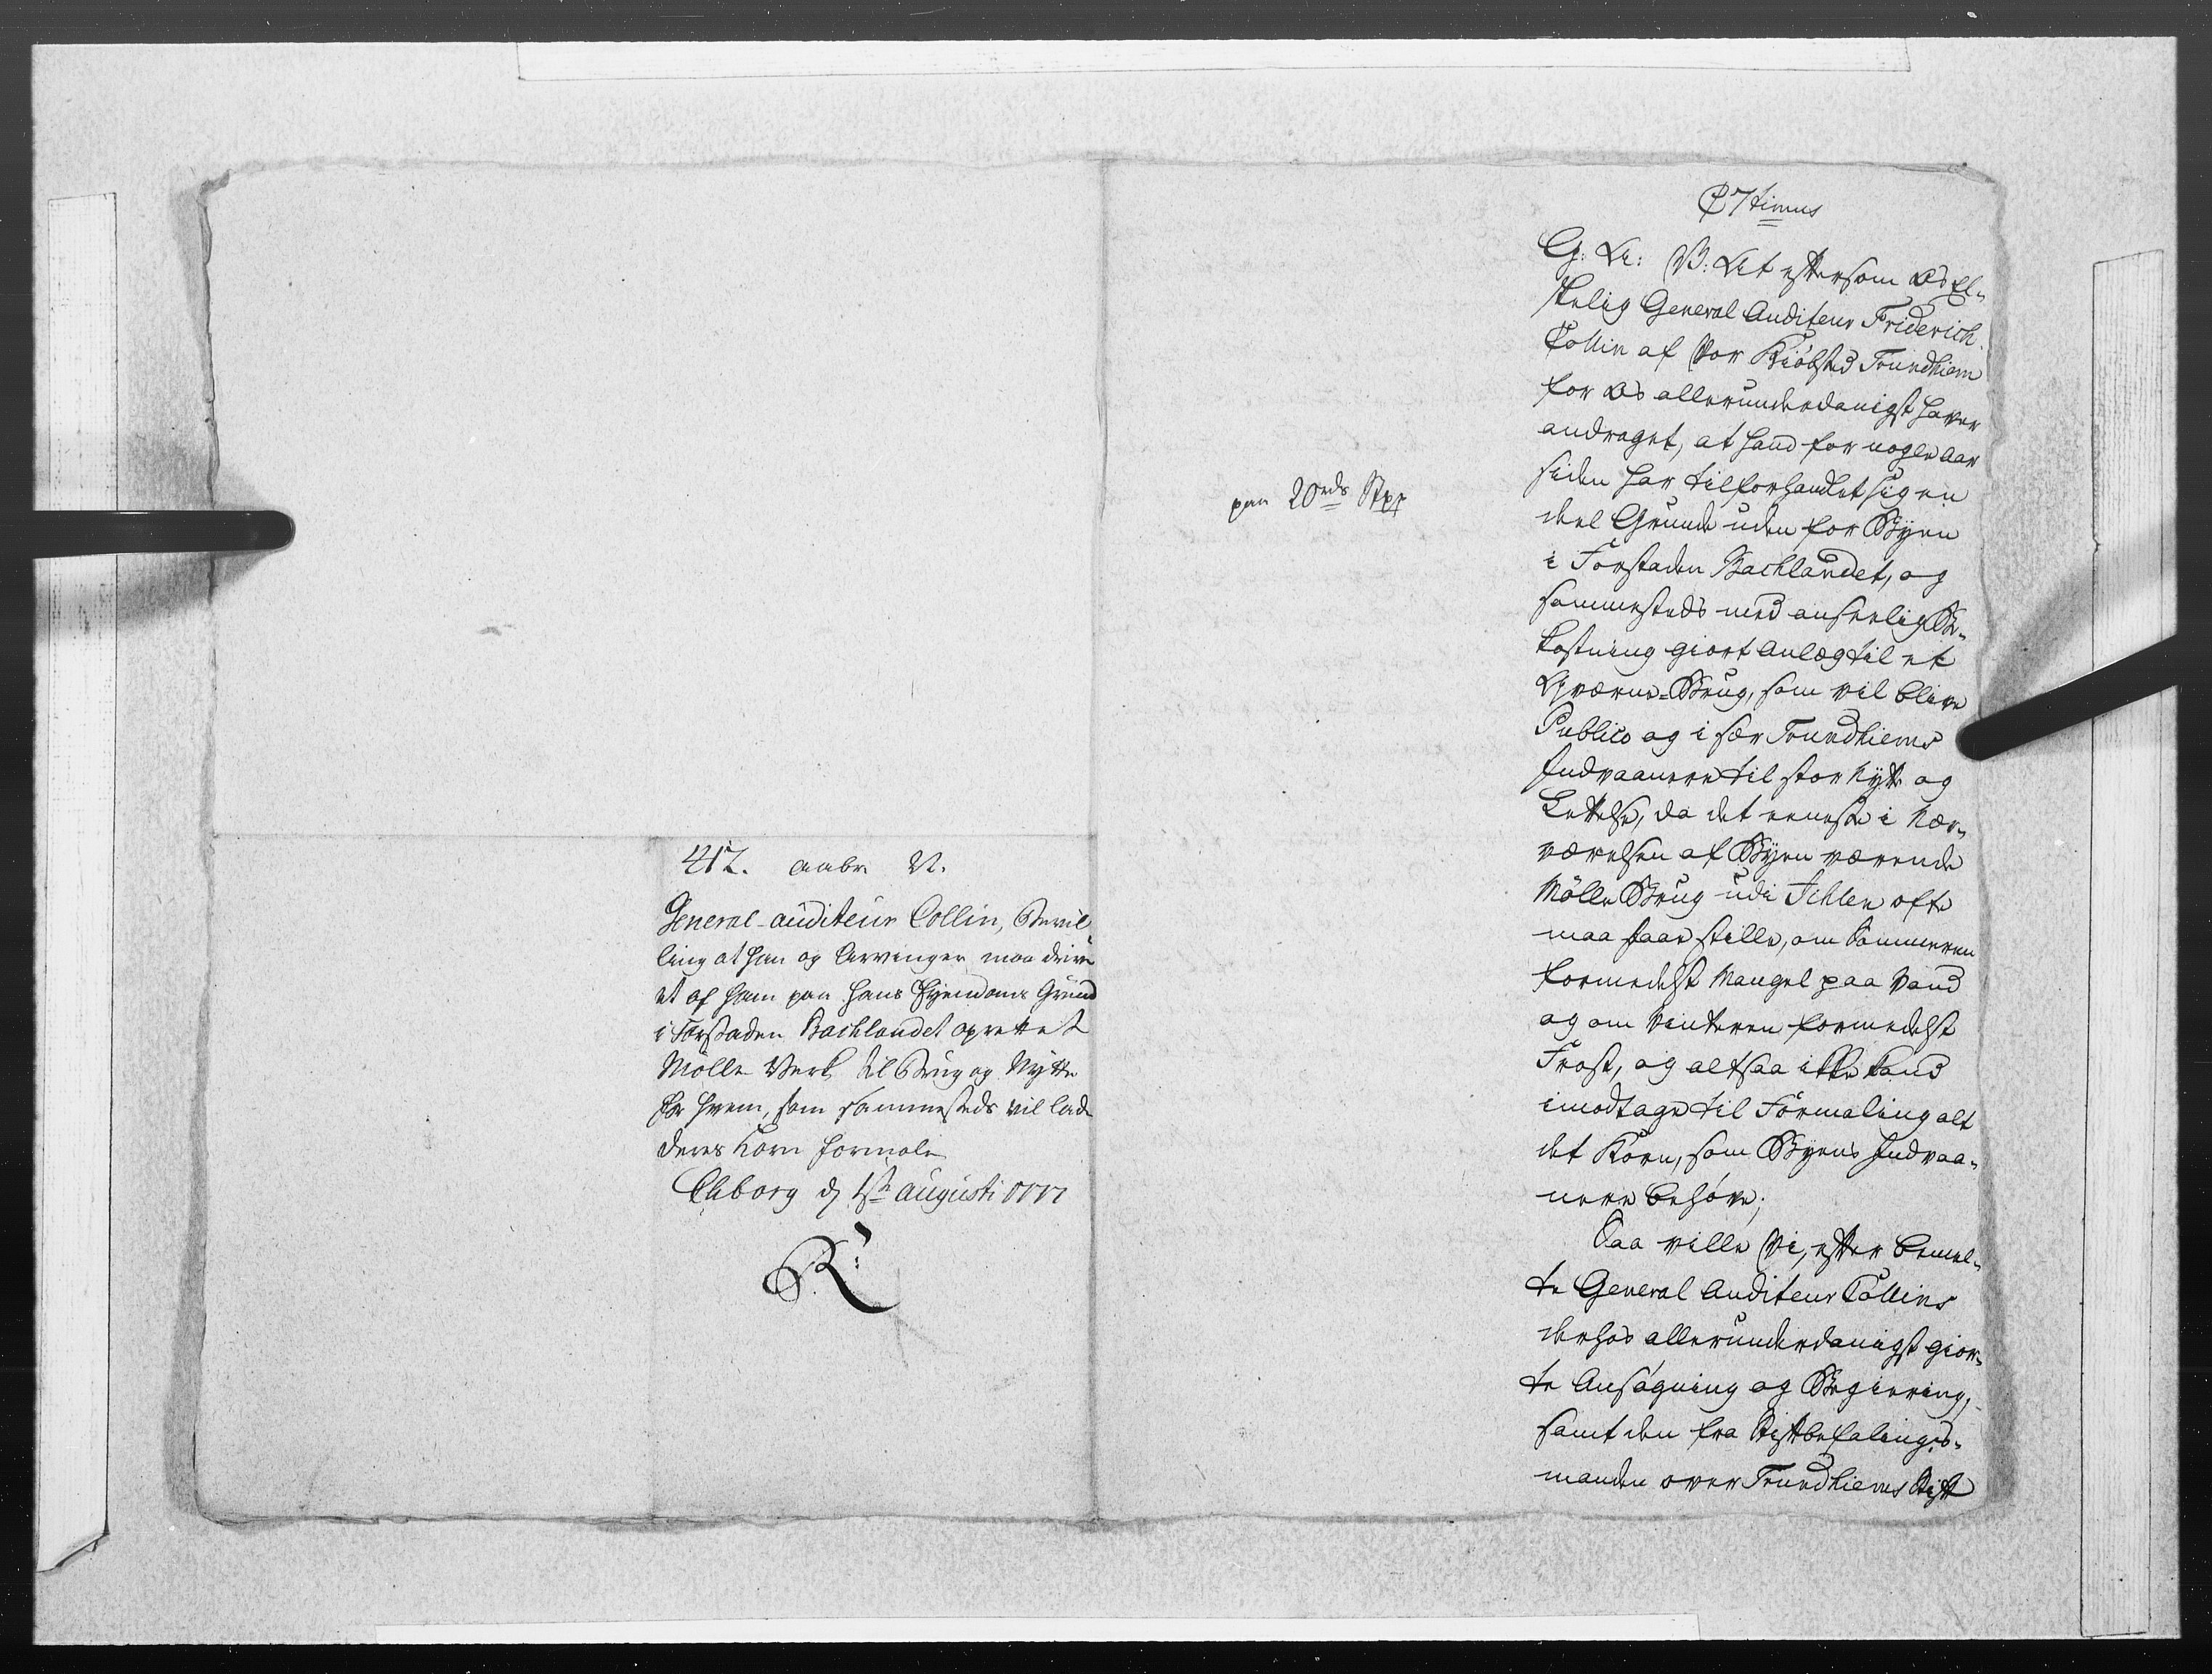 412. aabr. N.
General-auditeur Collin, Bevil-
ling at han og Arvinger maa drive
et af ham paa hans Eyendoms Grund
i Forstaden Bachlandet oprettet
Mölle Verk til Brug og Nytte
for hvem, som sammesteds vil lade
deres Korn formale
Chborg d 1ste augusti 1777
R:
paa 20 rds Stpp
C 7timus
G: V: Vit eftersom Os El-
skelig General Auditeur Friderich
Collin af Vor Kiöbsted Trundhiem
for Os allerunderdanigst haver
andraget, at hand for nogle Aar
siden har tilforhandlet sig en
deel Grunde uden for Byen
i Forstaden Bachlandet, og
sammesteds med anseelig Be-
kostning giort Anlæg til et
Qværne-Brug, som vil blive
Publico og i sær Trundhiems
Indvaanere til stor Nytte og
Lettelse, da det eeneste i Nær-
værelsen af Byen værende
Mölle Brug udi Ichlen ofte
maa staae stille, om Sommeren
formedelst Mangel paa Vand
og om Vinteren formedelst
Frost, og altsaa ikke kand
imodtage til Formaling alt
det Korn, som Byens Indvaa-
nere behöve;
Saa ville Vi, efter bemel-
te General Auditeur Collins
derhos allerunderdanigst gior-
te Ansögning og Begiering,
samt den fra Stiftbefalings-
manden over Trundhiems Stift